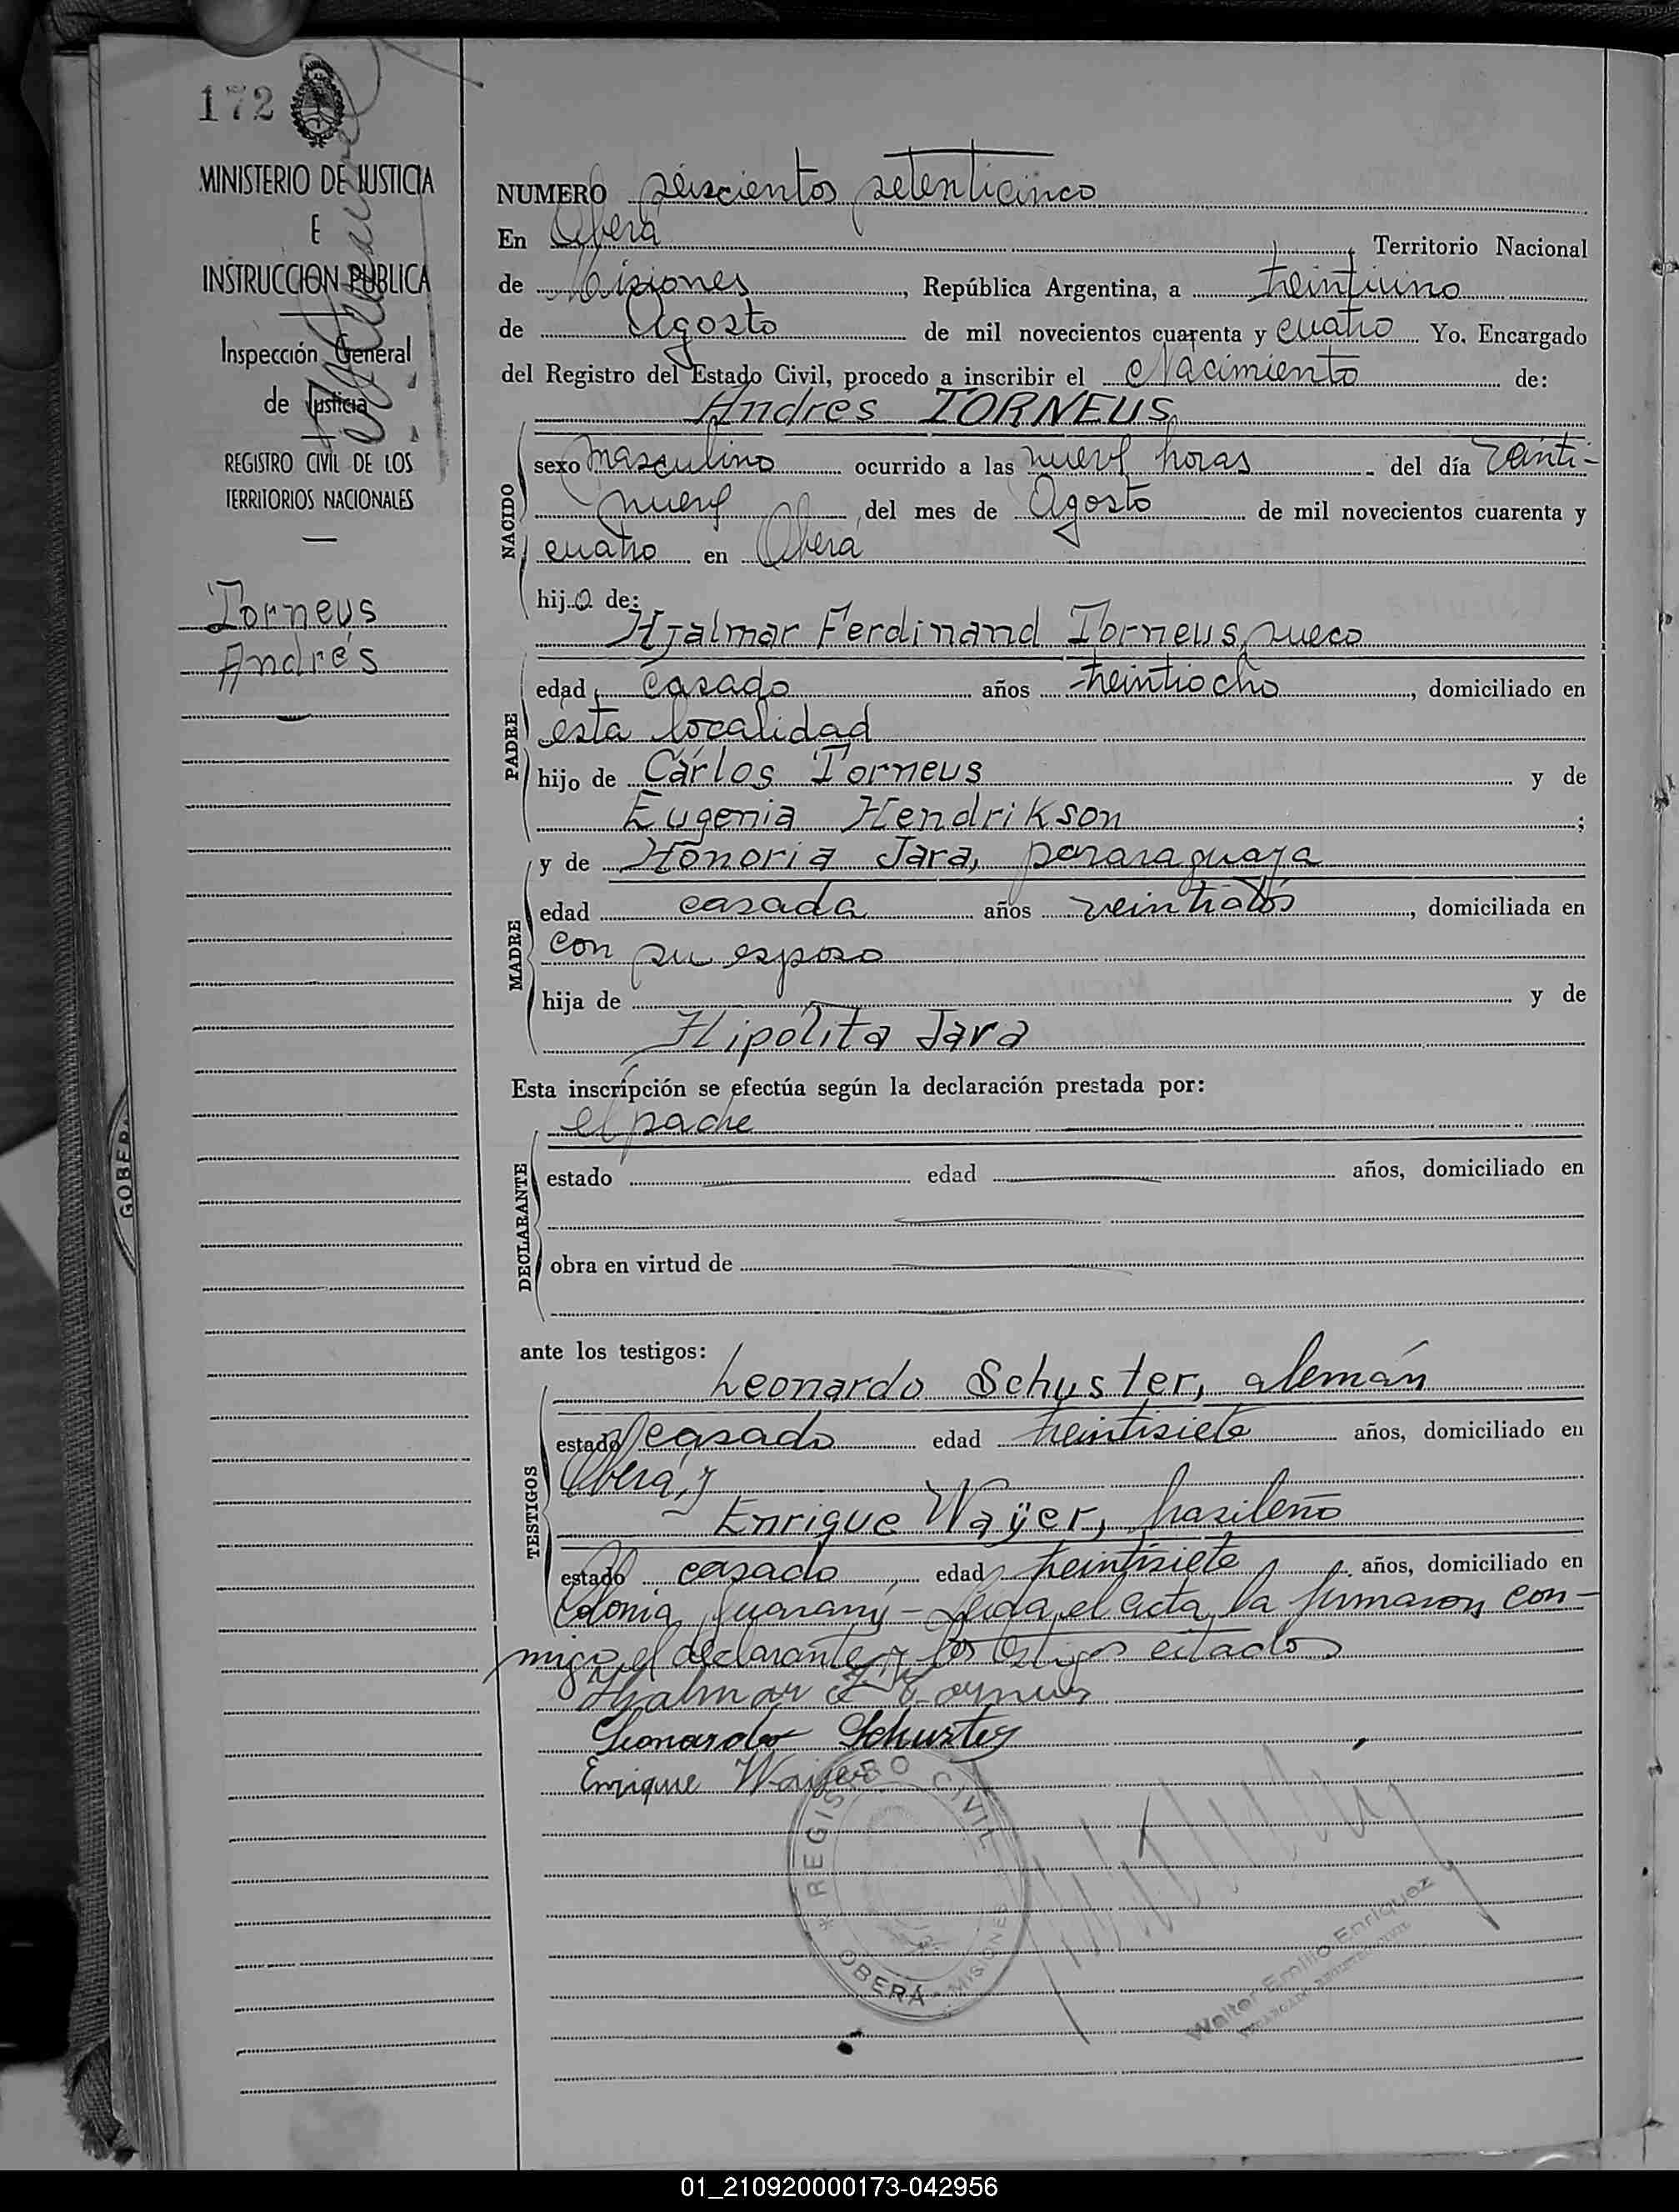 172
MINISTERIO DE JUSTICIA
E
INSTRUCCION PUBLICA
Inspección General
de Justicia
REGISTRO CIVIL DE LOS
TERRITORIOS NACIONALES
Torneus
Andrés
GOBER
NUMERO seiscientos setenticinco
En Oberá, Territorio Nacional
de Misiones, República Argentina, a treintiuno
de Agosto de mil novecientos cuarenta y cuatro Yo. Encargado
del Registro del Estado Civil, procedo a inscribir el Nacimiento de:
Andres TORNEUS
NACIDO
sexo masculino ocurrido a las nueve horas del día veinti-
nueve del mes de Agosto de mil novecientos cuarenta y
cuatro en Oberá
hijo de:
Hjalmar Ferdinand Torneus, sueco
PADRE
edad casado años treintiocho, domiciliado en
esta localidad
hijo de Cárlos Torneus y de
Eugenia Hendrikson;
y de Honoria Jara, pararaguaya
MADRE
edad casada años veintidós, domiciliada en
con su esposo
hija de y de
Hipólita Jara
Esta inscripción se efectúa según la declaración prestada por:
el padre
DECLARANTE
estado edad años, domiciliado en
obra en virtud de
ante los testigos:
Leonardo Schuster, alemán
TESTIGOS
estado casado edad treintisiete años, domiciliado en
Oberá, y
Enrique Waÿer, brasileño
estado casado edad treintisiete años, domiciliado en
Colonia Guarany - Leida el acta, la firmaron con-
migo el declarante y los testigos citados
Hjalmar F Torneus
Leonardo Schuster
Enrique Wayer
REGISTRO CIVIL
OBERÁ - MISIONES
Walter Emilio Enriquez
01_210920000173-042956